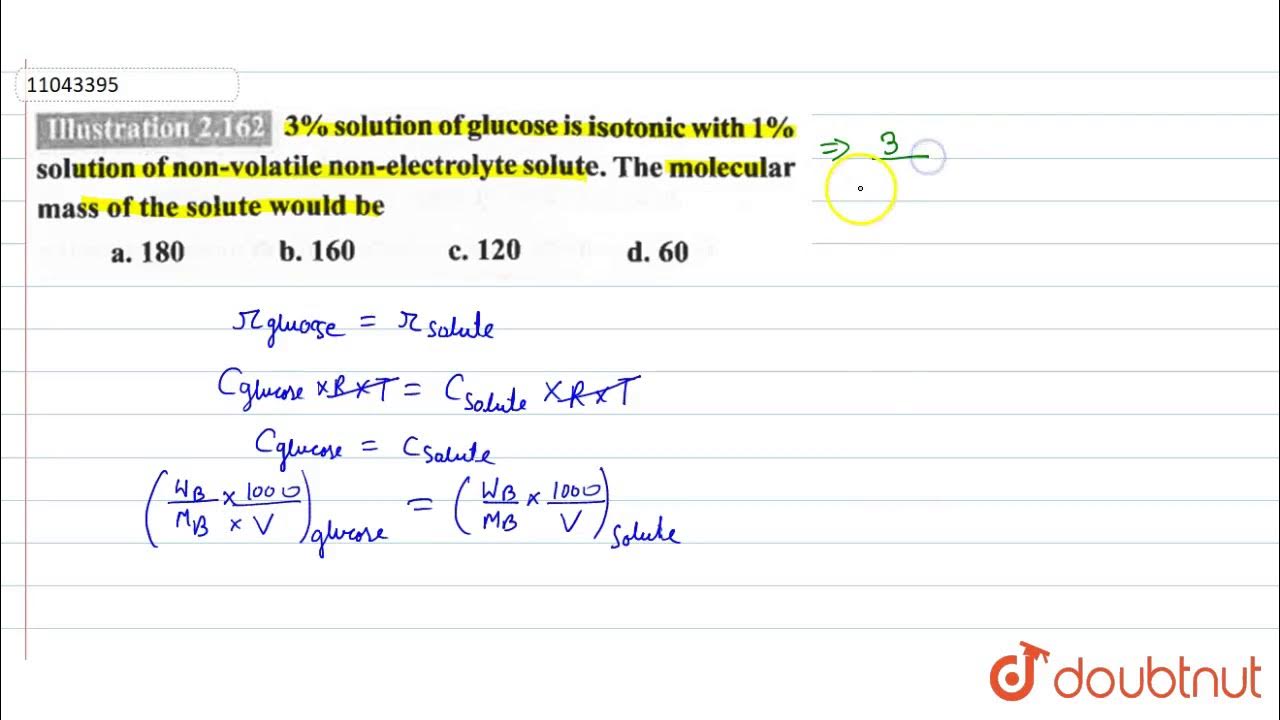 11043395
Illustration 2.162 3% solution of glucose is isotonic with 1%
solution of non-volatile non-electrolyte solute. The molecular
mass of the solute would be
a. 180 b. 160 c. 120 d. 60
⇒ 3
π glucose = π solute
C glucose × R × T = C solute × R × T
C glucose = C solute
(W_B/M_B × 1000/× V) glucose = (W_B/M_B × 1000/V) solute
doubtnut